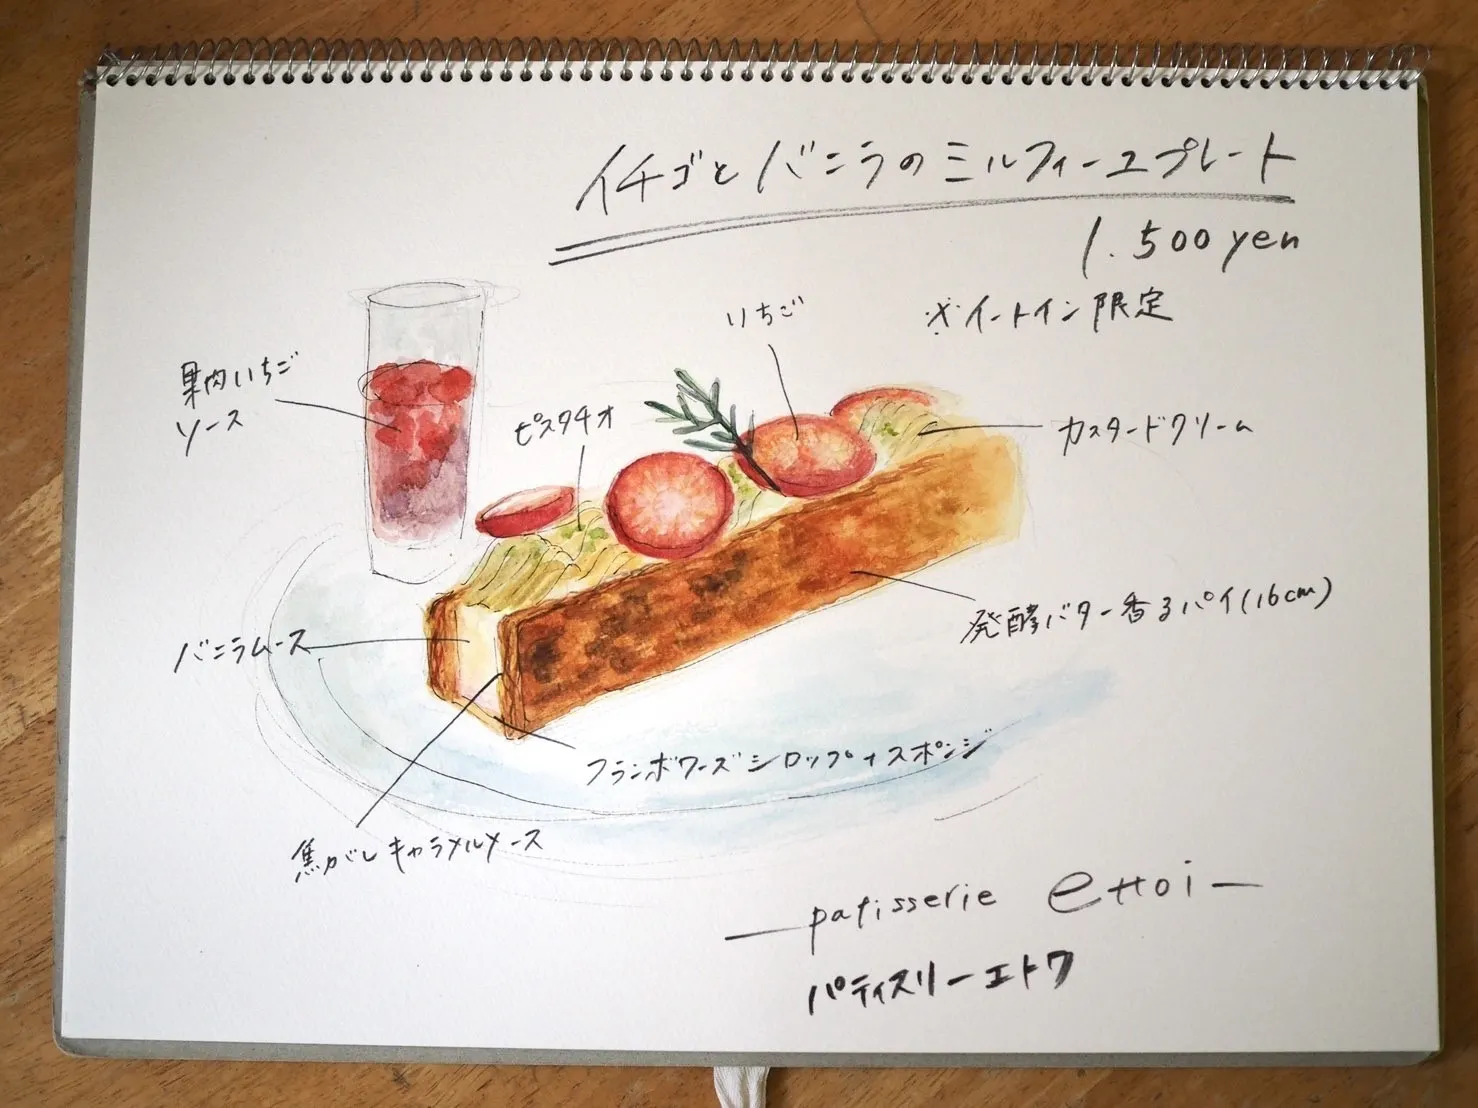 イチゴとバニラのミルフィーユプレート
1.500yen
※イートイン限定
いちご
果肉いちご
ソース
ピスタチオ
カスタードクリーム
発酵バター香るパイ(16cm)
バニラムース
フランボワーズシロップ+スポンジ
焦がしキャラメルソース
patisserie ettoi
パティスリーエトワ